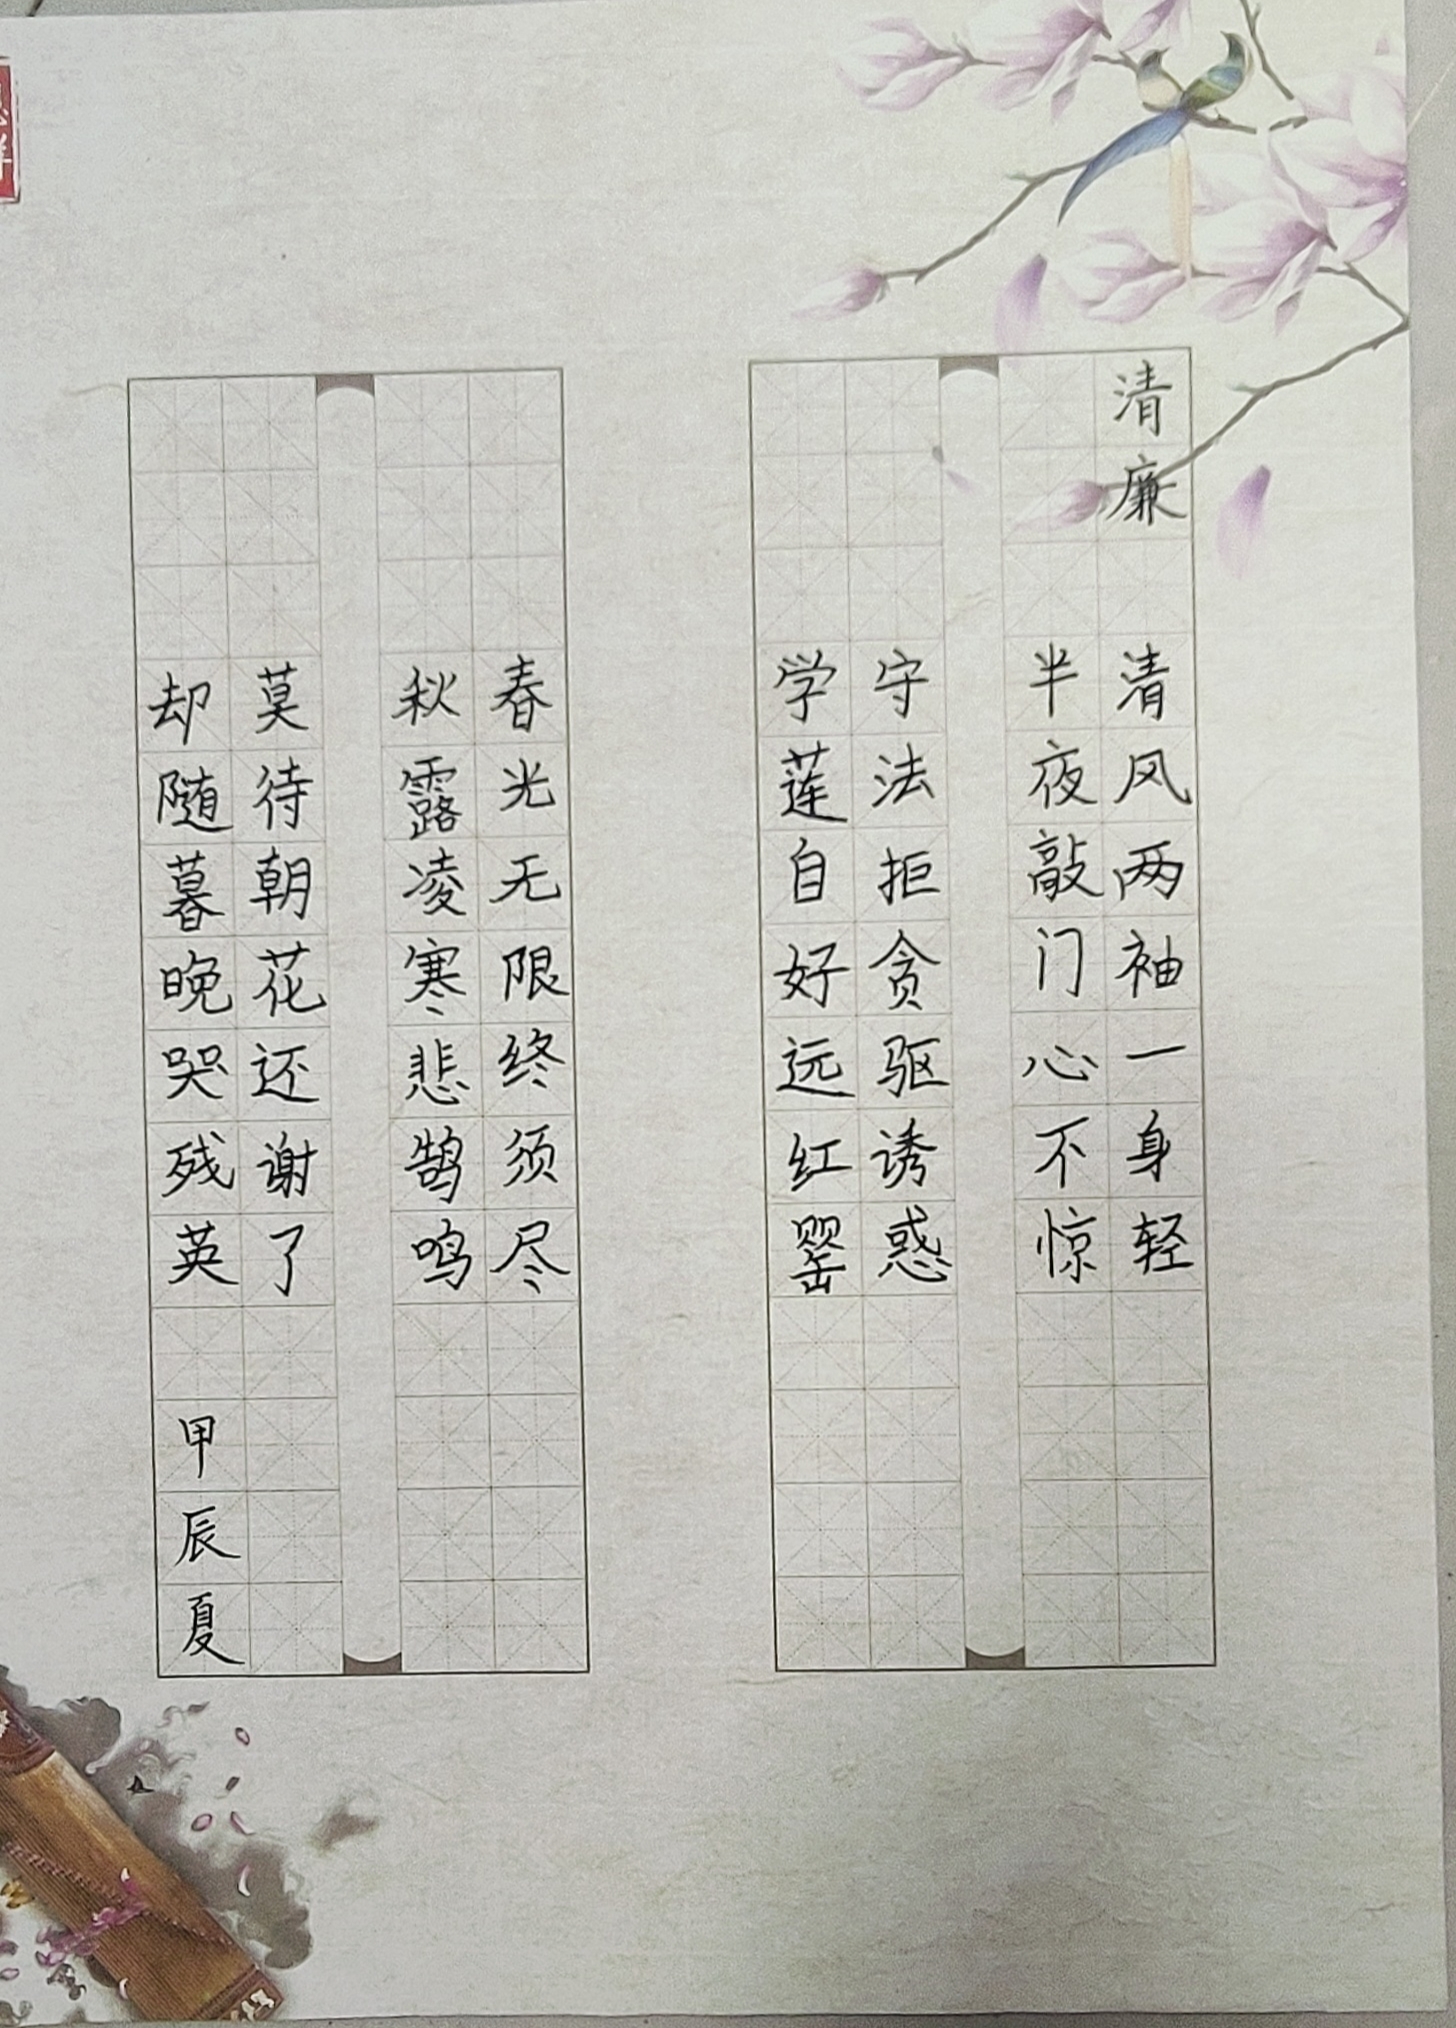 清廉
清风两袖一身轻
半夜敲门心不惊
守法拒贪驱诱惑
学莲自好远红罂
春光无限终须尽
秋露凌寒悲鹄鸣
莫待朝花还谢了
却随暮晚哭残英
甲辰夏